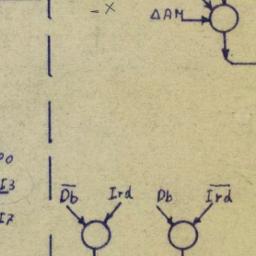 -x
ΔAM
I3
I7
D̅b̅ Ird Db I̅r̅d̅